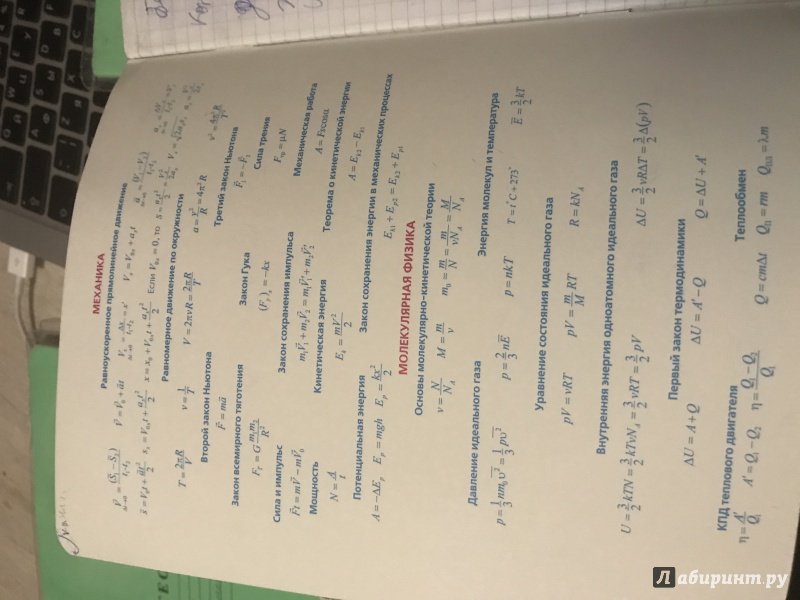 МЕХАНИКА
Равноускоренное прямолинейное движение
V⃗ = V⃗₀ + a⃗t
Vₓ = V₀ₓ + aₓt
x = x₀ + V₀ₓt + aₓt²/2
Если V₀ₓ = 0, то
Равномерное движение по окружности
T = 2πR/V ν = 1/T V = 2πνR = 2πR/T a = v²/R = 4π²R
Второй закон Ньютона
F⃗ = ma⃗
Третий закон Ньютона
F⃗₁ = -F⃗₂
Закон всемирного тяготения
F_T = G m₁m₂/R²
Закон Гука
(F_y)ₓ = -kx
Сила трения
F_тр = μN
Сила и импульс
F⃗t = mV⃗ - mV⃗₀
Закон сохранения импульса
m₁V⃗₁ + m₂V⃗₂ = m₁V⃗₁' + m₂V⃗₂'
Механическая работа
A = Fscosα
Мощность
N = A/t
Кинетическая энергия
E_k = mV²/2
Теорема о кинетической энергии
A = E_k2 - E_k1
Потенциальная энергия
A = -ΔE_p E_p = mgh E_p = kx²/2
Закон сохранения энергии в механических процессах
E_k1 + E_p2 = E_k2 + E_p1
МОЛЕКУЛЯРНАЯ ФИЗИКА
Основы молекулярно-кинетической теории
ν = N/N_A M = m/ν m₀ = m/N = m/νN_A = M/N_A
Давление идеального газа
p = 1/3 nm₀υ̅² = 1/3 ρυ̅² p = 2/3 nE̅
Энергия молекул и температура
p = nkT T = t°C + 273° E̅ = 3/2 kT
Уравнение состояния идеального газа
pV = νRT pV = m/M RT R = kN_A
Внутренняя энергия одноатомного идеального газа
U = 3/2 kTN = 3/2 kTνN_A = 3/2 νRT = 3/2 pV ΔU = 3/2 νRΔT = 3/2 Δ(pV)
Первый закон термодинамики
ΔU = A + Q ΔU = A' - Q Q = ΔU + A'
КПД теплового двигателя
η = A'/Q₁ A' = Q₁ - Q₂ η = Q₁ - Q₂/Q₁
Теплообмен
Q = cmΔt Q_П = rm Q_ПЛ = λm
Лабиринт.ру